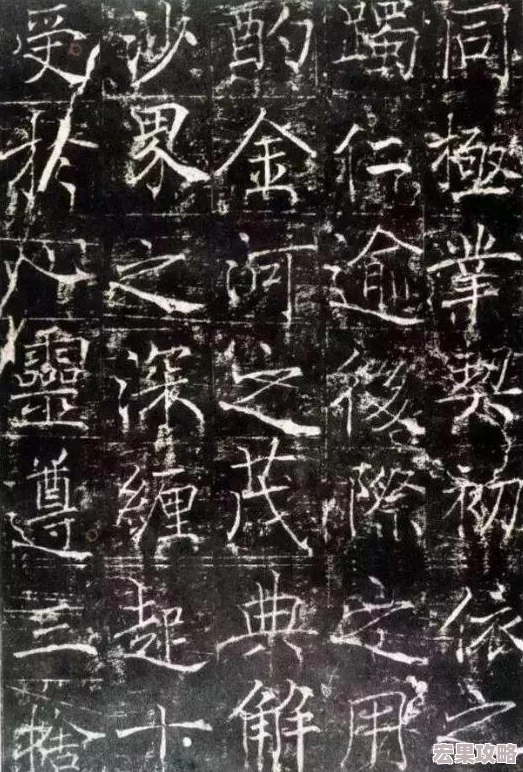 同極業契初依之
躅仁逾後際之用
酌金河之茂典解
沙界之深纏起十
受於八靈遵三捨
宏果攻略